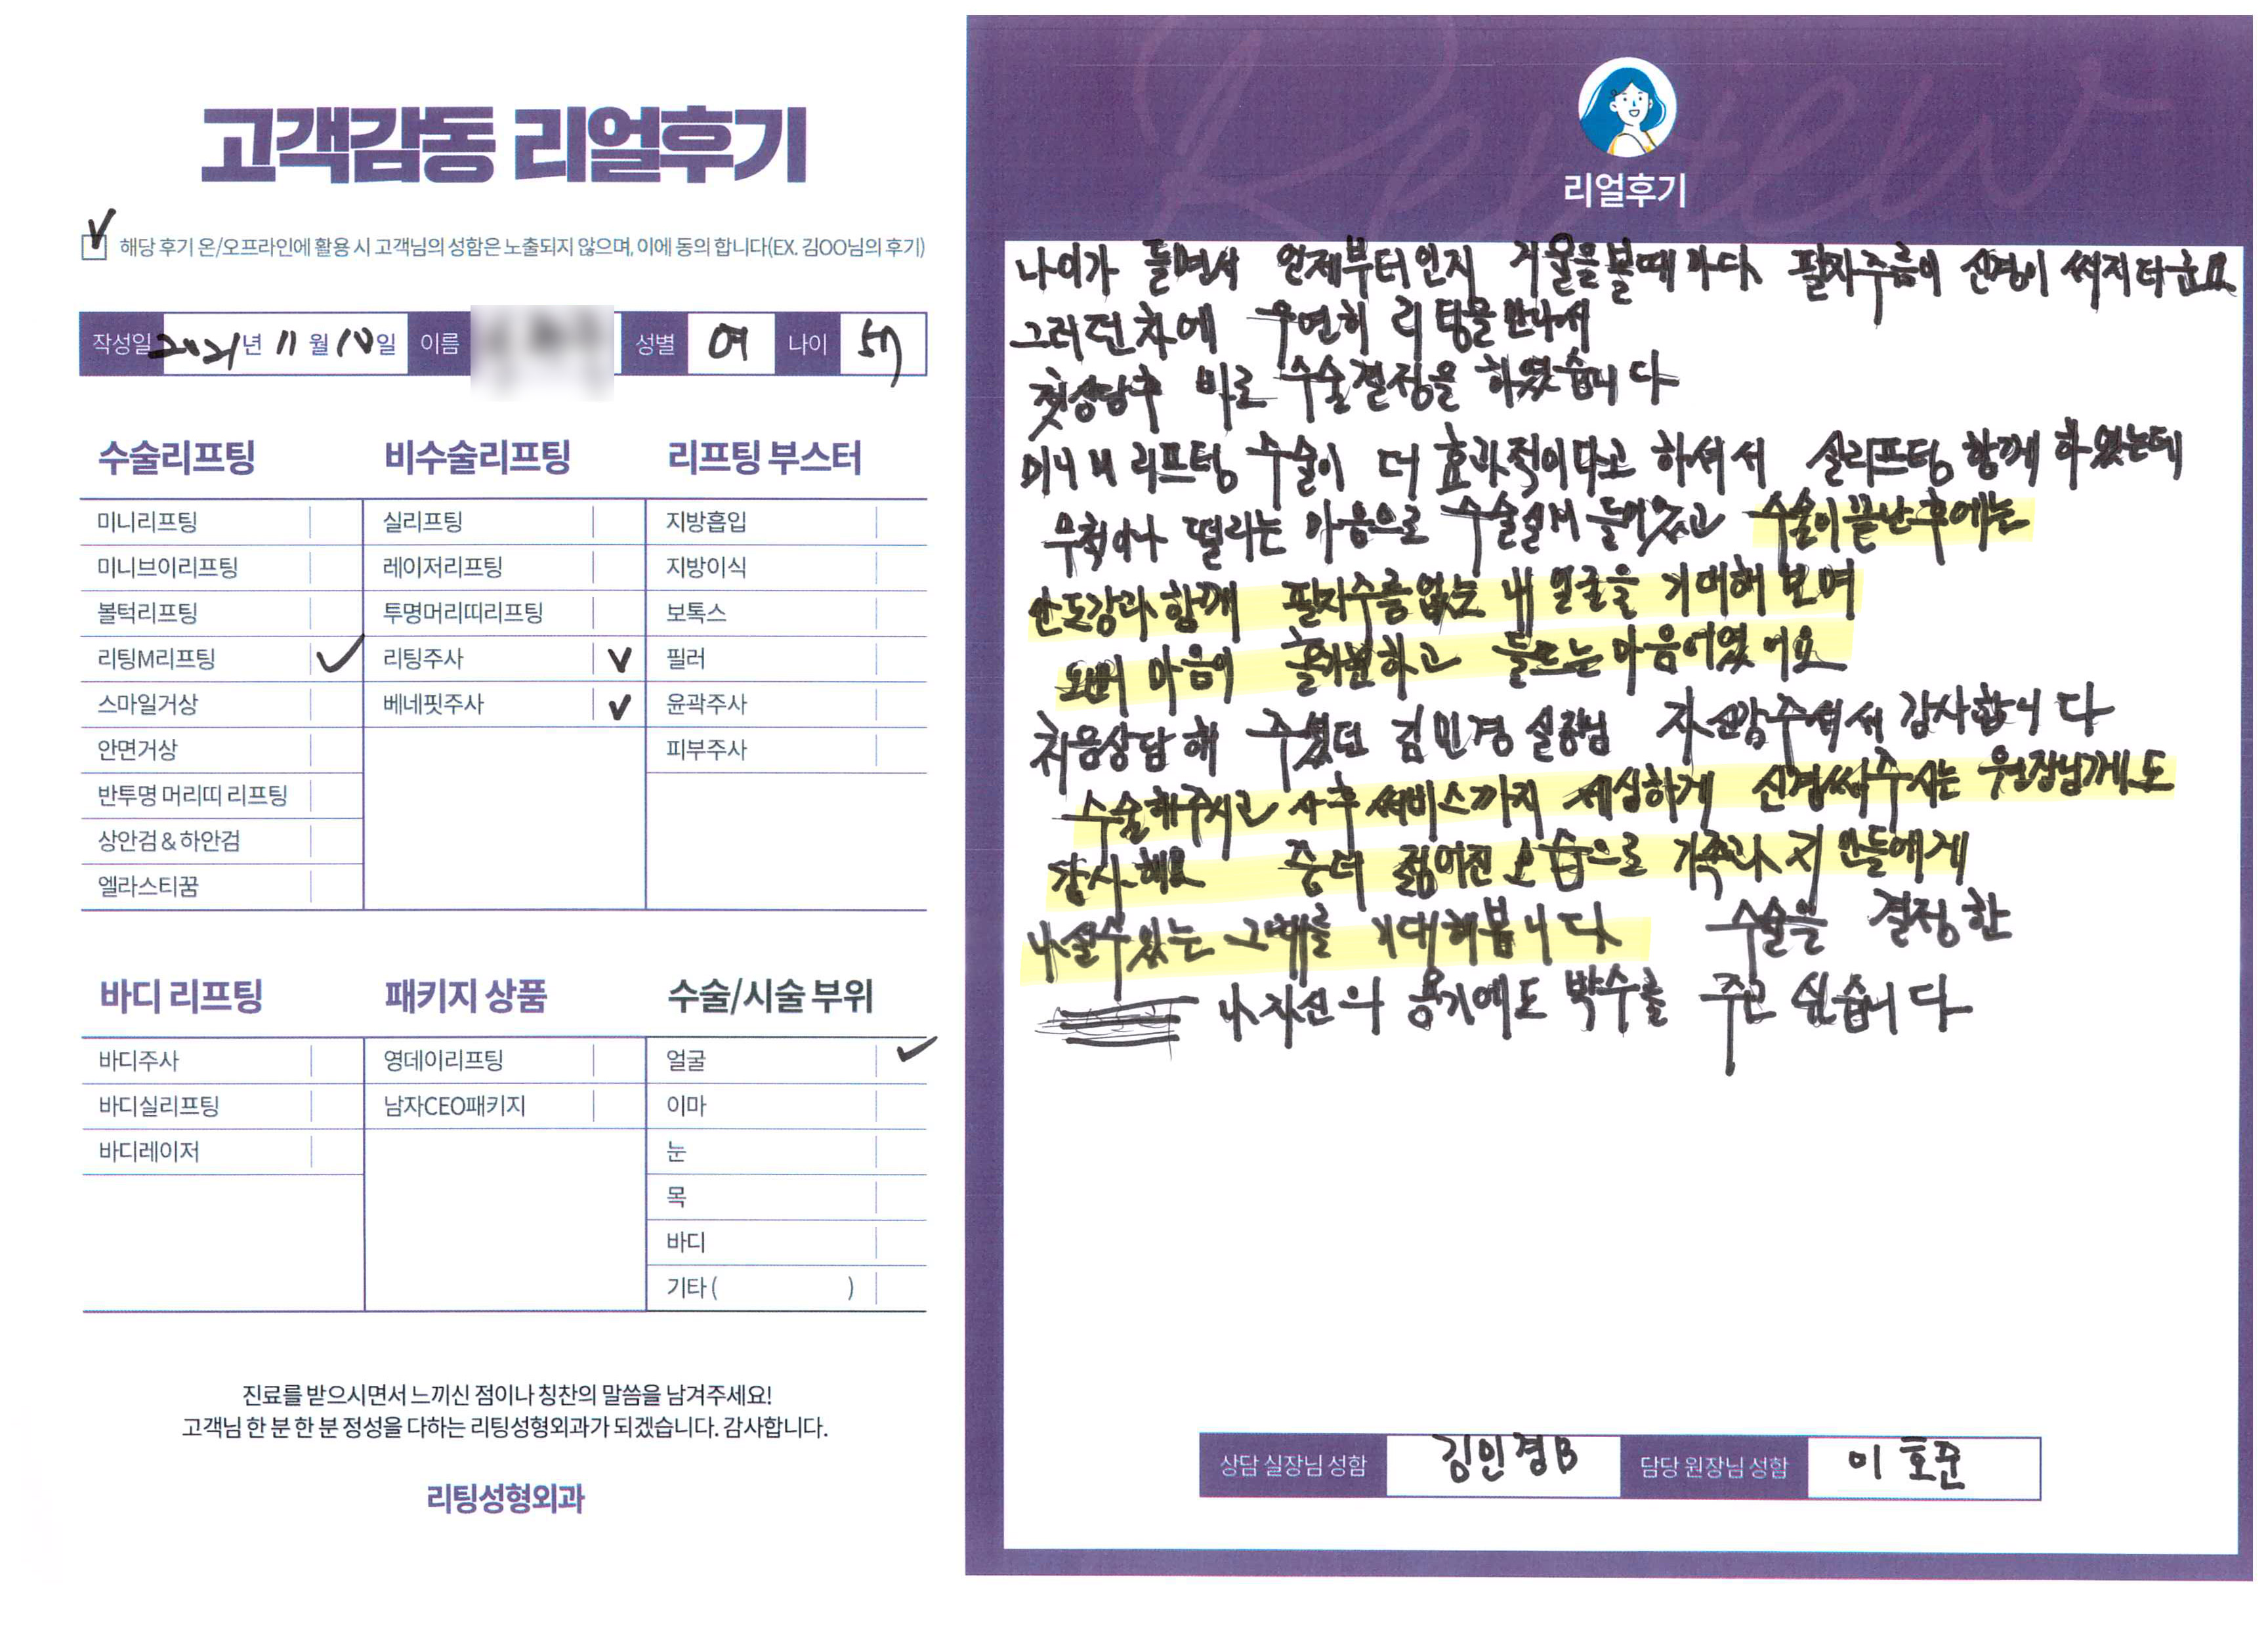 고객감동 리얼후기
해당 후기 온/오프라인에 활용 시 고객님의 성함은 노출되지 않으며, 이에 동의 합니다(EX. 김OO님의 후기)
작성일 2021년 11월 10일 이름 성별 여 나이 57
수술리프팅 비수술리프팅 리프팅 부스터
미니리프팅 실리프팅 지방흡입
미니브이리프팅 레이저리프팅 지방이식
볼턱리프팅 투명머리띠리프팅 보톡스
리팅M리프팅 리팅주사 필러
스마일거상 베네핏주사 윤곽주사
안면거상 피부주사
반투명 머리띠 리프팅
상안검 & 하안검
엘라스티꿈
바디 리프팅 패키지 상품 수술/시술 부위
바디주사 영데이리프팅 얼굴
바디실리프팅 남자CEO패키지 이마
바디레이저 눈
목
바디
기타 ( )
진료를 받으시면서 느끼신 점이나 칭찬의 말씀을 남겨주세요!
고객님 한 분 한 분 정성을 다하는 리팅성형외과가 되겠습니다. 감사합니다.
리팅성형외과
Review
리얼후기
나이가 들면서 언제부터인지 거울을 볼때마다 팔자주름이 신경이 써지더군요
그러던차에 우연히 리팅을 만나서
첫상담후 바로 수술결정을 하였습니다
미니 V 리프팅 수술이 더 효과적이다고 하셔서 실리프팅 함께 하였는데
무척이나 떨리는 마음으로 수술실에 들어갔고 수술이 끝난후에는
안도감과 함께 팔자주름없는 내 얼굴을 기대해 보며
마음이 홀가분하고 들뜨는 마음이였어요
처음상담 해 주셨던 김민경 실장님 자신감주셔서 감사합니다
수술해주시고 사후 써비스까지 세심하게 신경써주시는 원장님께도
감사해요 좀더 젊어진 모습으로 가족과 지인들에게
나설수 있는 그때를 기대해봅니다. 수술을 결정한
나 자신의 용기에도 박수를 주고 싶습니다
상담 실장님 성함 김민경B 담당 원장님 성함 이호준